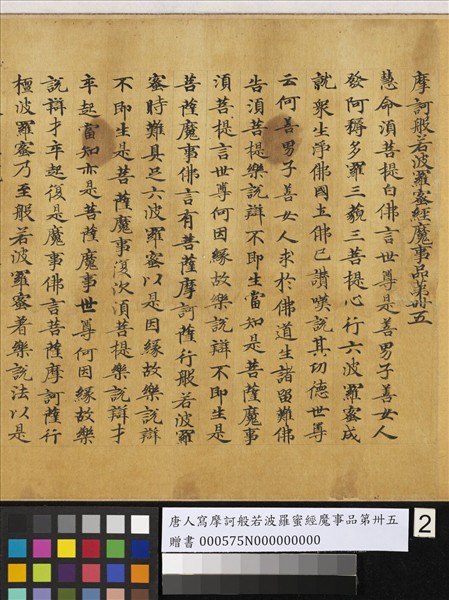 摩訶般若波羅蜜經魔事品第卅五
慧命湏菩提白佛言世尊是善男子善女人
發阿耨多羅三藐三菩提心行六波羅蜜成
就衆生淨佛國土佛已讃嘆說其功德世尊
云何善男子善女人求於佛道生諸留難佛
告湏菩提樂說辯不即生當知是菩薩魔事
湏菩提言世尊何因緣故樂說辯不即生是
菩薩魔事佛言有菩薩摩訶薩行般若波羅
蜜時難具足六波羅蜜以是因緣故樂說辯
不即生是菩薩魔事復次湏菩提樂說辯才
卒起當知亦是菩薩魔事世尊何因緣故樂
說辯才卒起復是魔事佛言菩薩摩訶薩行
檀波羅蜜乃至般若波羅蜜著樂說法以是
唐人寫摩訶般若波羅蜜經魔事品第卅五
贈書 000575N000000000
2